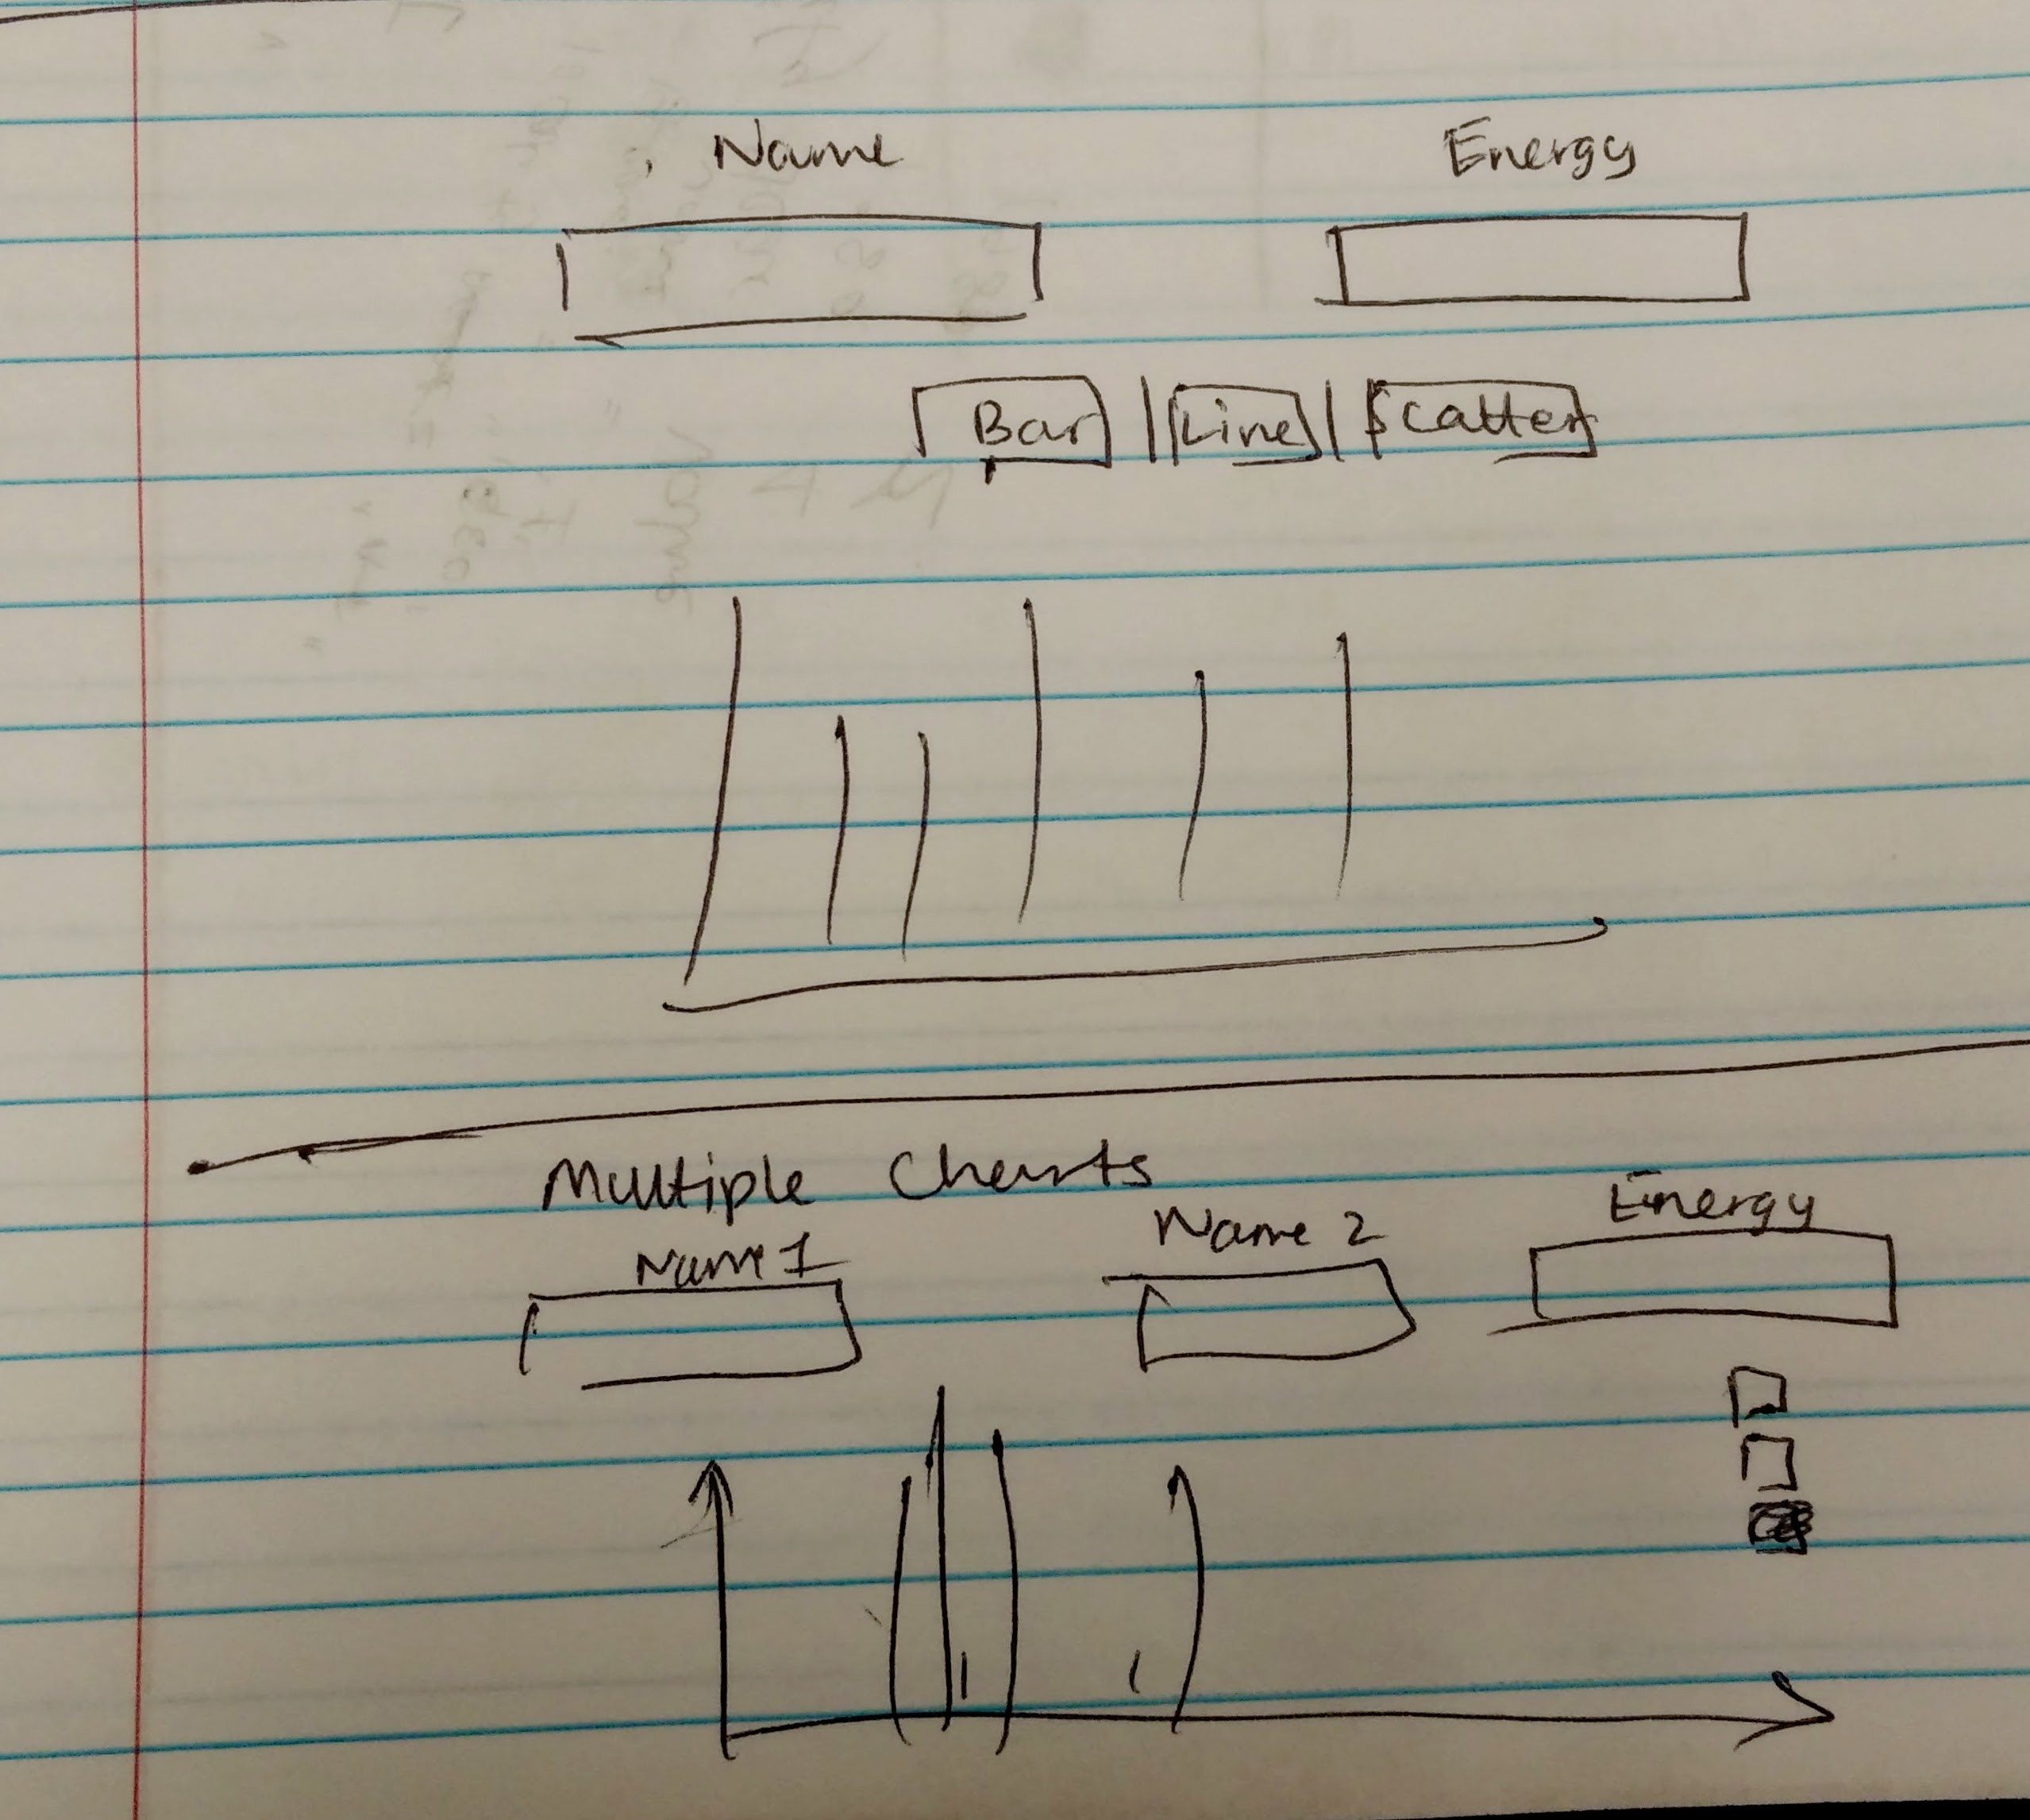 Name Energy
Bar | Line | Scatter
Multiple Charts
Name 1 Name 2 Energy